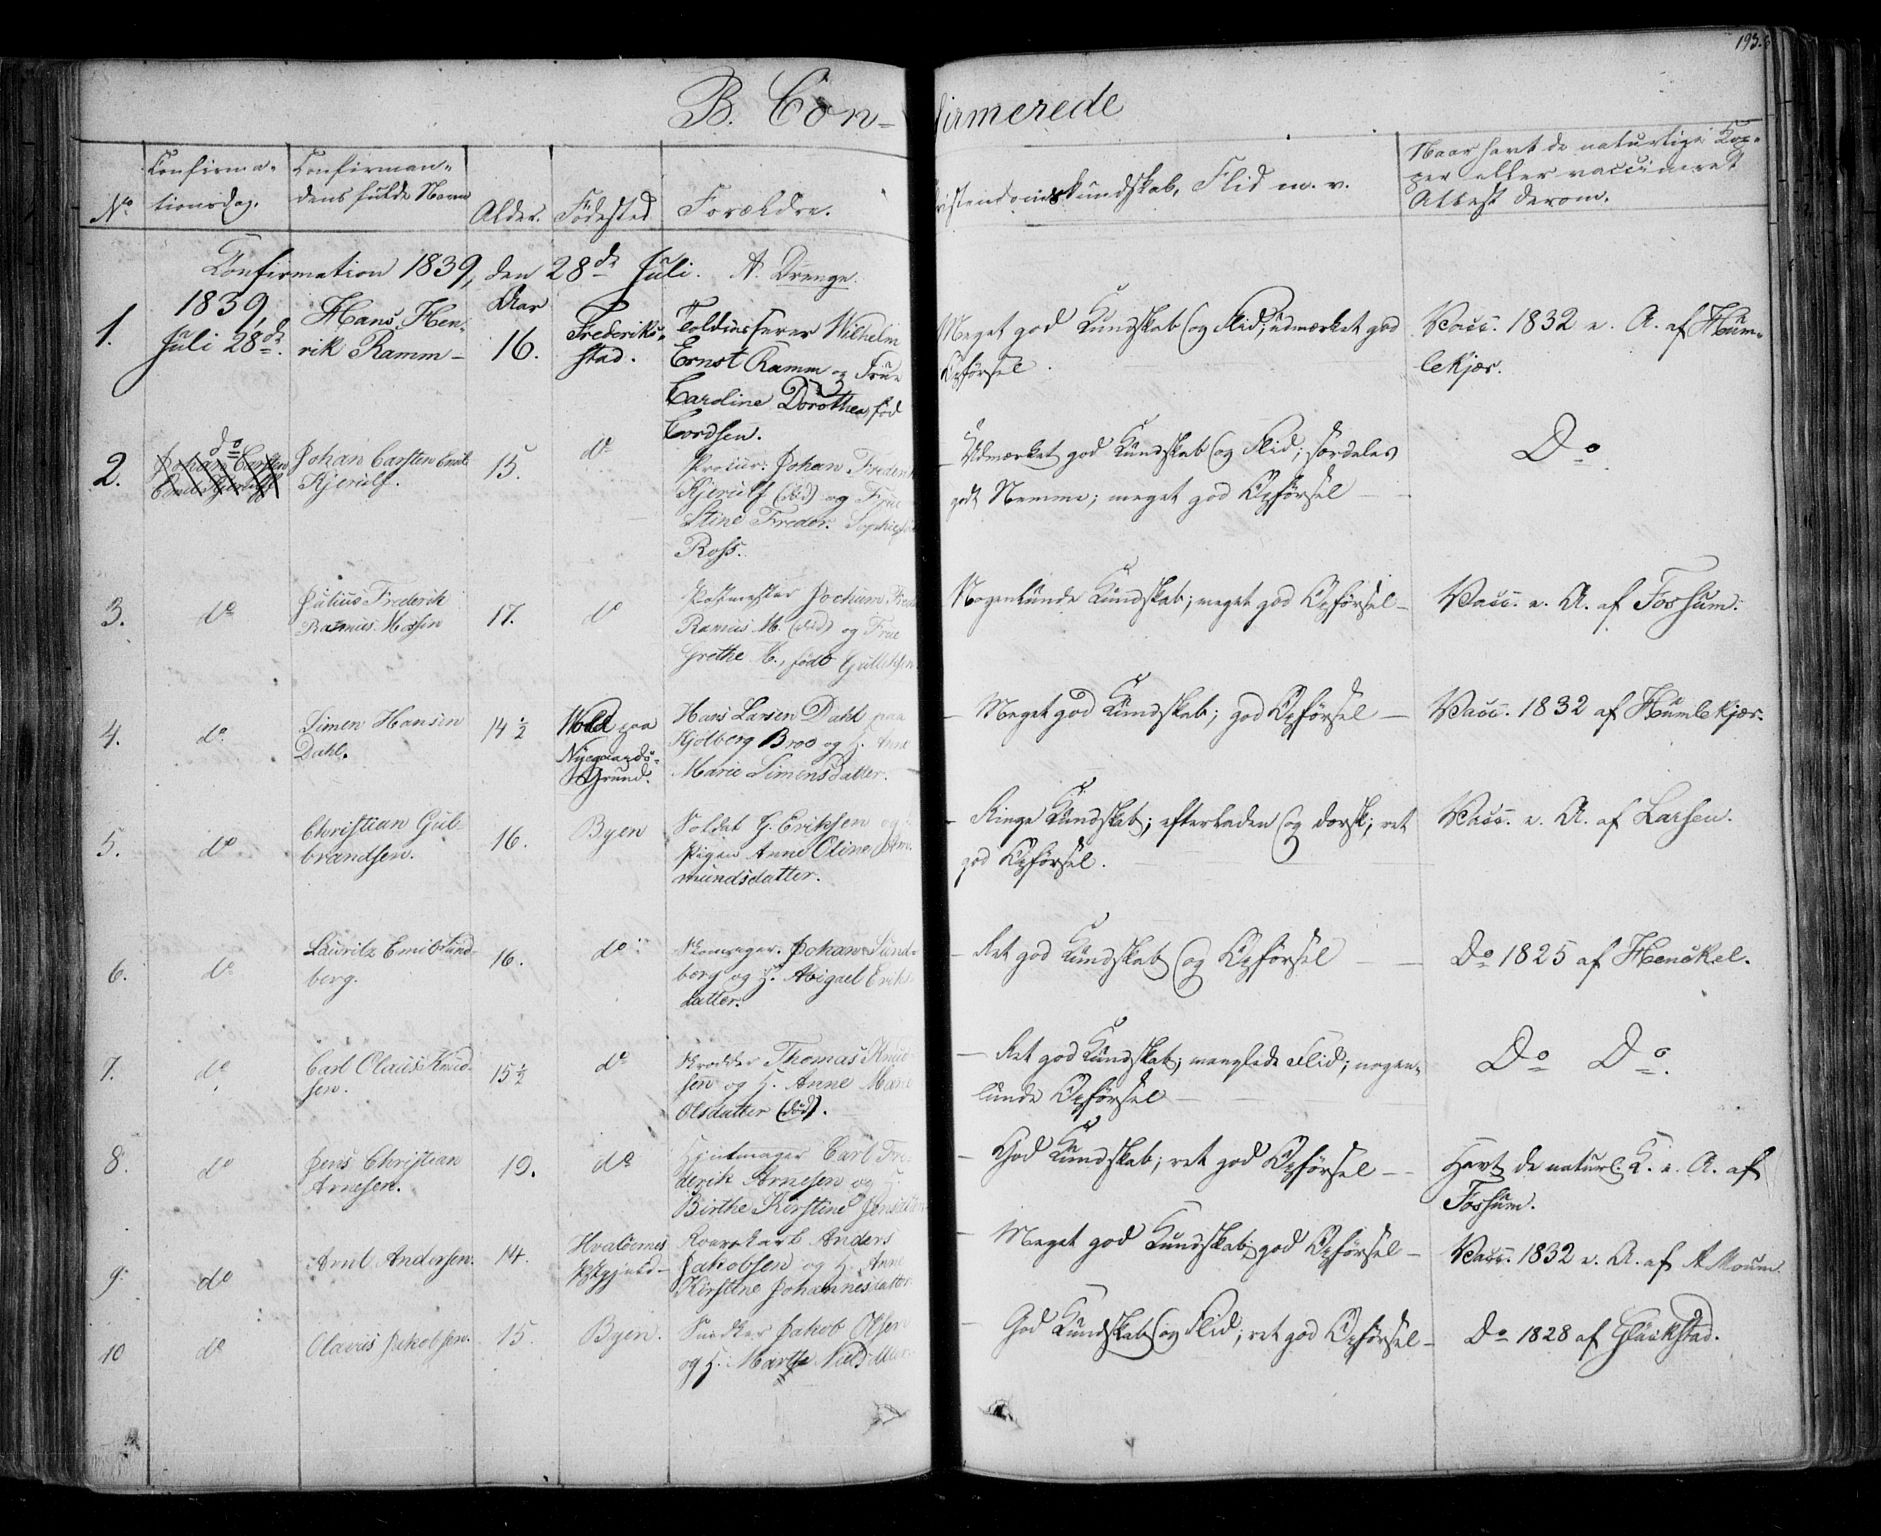 193.
B. Con-firmerede
No
Confirma-
tionsdag.
Confirman-
dens fulde Navn
Alder.
Fødested
Forældre.
Christendomskundskab, Flid m. v.
Naar havt de naturlige Kop-
per eller vaccineret
Attest derom.
Confirmation 1839, den 28de Juli. A. Drenge.
1.
1839,
Juli 28de.
Hans Hen-
rik Ramm-
Aar
16.
Frederiks-
stad.
Toldinspecteur Wilhelm
Ernst Ramm og Frue
Caroline Dorothea, fød
Cordsen.
Meget god Kundskab og Flid; udmærket god
Opførsel.
Vacc. 1832 e. A. af Hum-
lekjær.
2.
do
Johan Carsten
Emil Kjerulf
Johan Carsten Emil
Kjerulf.
15.
do
Procur. Johan Frederik
Kjerulf (død) og Frue
Stine Freder. Sophie, fød
Ross.
Udmærket god Kundskab og Flid; særdeles
godt Nemme; meget god Opførsel —
Do.
3.
do
Julius Frederik
Rasmus Mossin
17.
do
Postmester Jochum Fred
Rasmus M. (død) og Frue
Grethe M., født Gullichsen
Nogenlunde Kundskab; meget god Opførsel —
Vacc. e. A. af Fossum.
4.
do
Simen Hansen
Dahl.
14½
Vold paa
Nygaards-
Grund.
Hans Larsen Dahl paa
Kjølberg Bro og H. Anne
Marie Simensdatter.
— Meget god Kundskab; god Opførsel —
Vacc. 1832 af Humlekjær.
5.
do
Christian Gul-
brandsen.
16.
Byen
Soldat G. Eriksen og
Pigen Anne Oline Am-
mundsdatter.
— Ringe Kundskab; efterladen og dorsk; ret
god Opførsel.
Vacc. e. A. af Larsen.
6.
do
Lauritz Emil Lund-
berg.
16.
do
Skomager Johan Lund-
berg og H. Abigael Eriks-
datter.
— Ret god Kundskab og Opførsel —
Do 1825 af Henckel.
7.
do
Carl Olaus Knud-
sen.
15½
do
Skrædder Thomas Knud-
sen og H. Anne Marie
Olsdatter (død).
— Ret god Kundskab; manglede Flid; nogen-
lunde Opførsel —
Do Do.
8.
do
Jens Christian
Arnesen.
19.
do
Hjulmager Carl Fre-
derik Arnesen og H.
Birthe Kirstine Jensdatter
— God Kundskab; ret god Opførsel —
Havt de naturl. K. e. A. af
Fossum.
9.
do
Arnt Andersen.
14.
Hvaløernes
Prgjeld-
Anders
Jakobsen og H. Anne
Kirstine Johannesdatter
— Meget god Kundskab; god Opførsel —
Vacc. 1832 e. A. af A Moum.
10
do
Olavus Jakobsen.
15.
Byen.
Snedker Jakob Olsen
og H. Marthe Nielsdatter
— God Kundskab og Flid; ret god Opførsel —
Do 1828 af Glückstad.